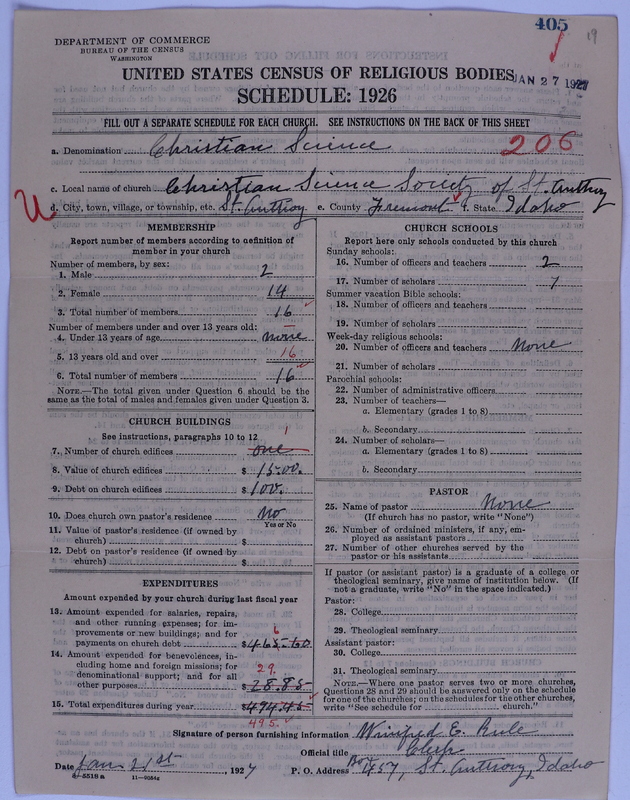 405
19
DEPARTMENT OF COMMERCE
BUREAU OF THE CENSUS
WASHINGTON
UNITED STATES CENSUS OF RELIGIOUS BODIES
JAN 27 1927
SCHEDULE: 1926
FILL OUT A SEPARATE SCHEDULE FOR EACH CHURCH. SEE INSTRUCTIONS ON THE BACK OF THIS SHEET
a. Denomination Christian Science 206
c. Local name of church Christian Science Society of St. Anthony
d. City, town, village, or township, etc. St. Anthony e. County Fremont f. State Idaho
MEMBERSHIP
Report number of members according to definition of
member in your church
Number of members, by sex:
1. Male 2
2. Female 14
3. Total number of members 16
Number of members under and over 13 years old:
4. Under 13 years of age none
5. 13 years old and over 16
6. Total number of members 16
NOTE.—The total given under Question 6 should be the
same as the total of males and females given under Question 3.
CHURCH BUILDINGS
See instructions, paragraphs 10 to 12
7. Number of church edifices one 1
8. Value of church edifices $ 1500.
9. Debt on church edifices $ 100.
10. Does church own pastor's residence no
Yes or No
11. Value of pastor's residence (if owned by
church) $
12. Debt on pastor's residence (if owned by
church) $
EXPENDITURES
Amount expended by your church during last fiscal year
13. Amount expended for salaries, repairs,
and other running expenses; for im-
provements or new buildings; and for
payments on church debt $ 465.60
6
14. Amount expended for benevolences, in-
cluding home and foreign missions; for
denominational support; and for all
other purposes $ 28.85
29.
15. Total expenditures during year $ 494.45
495.
CHURCH SCHOOLS
Report here only schools conducted by this church
Sunday schools:
16. Number of officers and teachers 2
17. Number of scholars 7
Summer vacation Bible schools:
18. Number of officers and teachers
19. Number of scholars
Week-day religious schools:
20. Number of officers and teachers None
21. Number of scholars
Parochial schools:
22. Number of administrative officers
23. Number of teachers—
a. Elementary (grades 1 to 8)
b. Secondary
24. Number of scholars—
a. Elementary (grades 1 to 8)
b. Secondary
PASTOR
25. Name of pastor None
(If church has no pastor, write "None")
26. Number of ordained ministers, if any, em-
ployed as assistant pastors
27. Number of other churches served by the
pastor or his assistants
If pastor (or assistant pastor) is a graduate of a college or
theological seminary, give name of institution below. (If
not a graduate, write "No" in the space indicated.)
Pastor:
28. College
29. Theological seminary
Assistant pastor:
30. College
31. Theological seminary
NOTE.—Where one pastor serves two or more churches,
Questions 28 and 29 should be answered only on the schedule
for one of the churches; on the schedules for the other churches,
write "See schedule for church."
Signature of person furnishing information Winifred E. Rule
Official title Clerk
Date Jan 21st, 1927 P. O. Address Box 457, St. Anthony, Idaho
8-5518a 11-9054